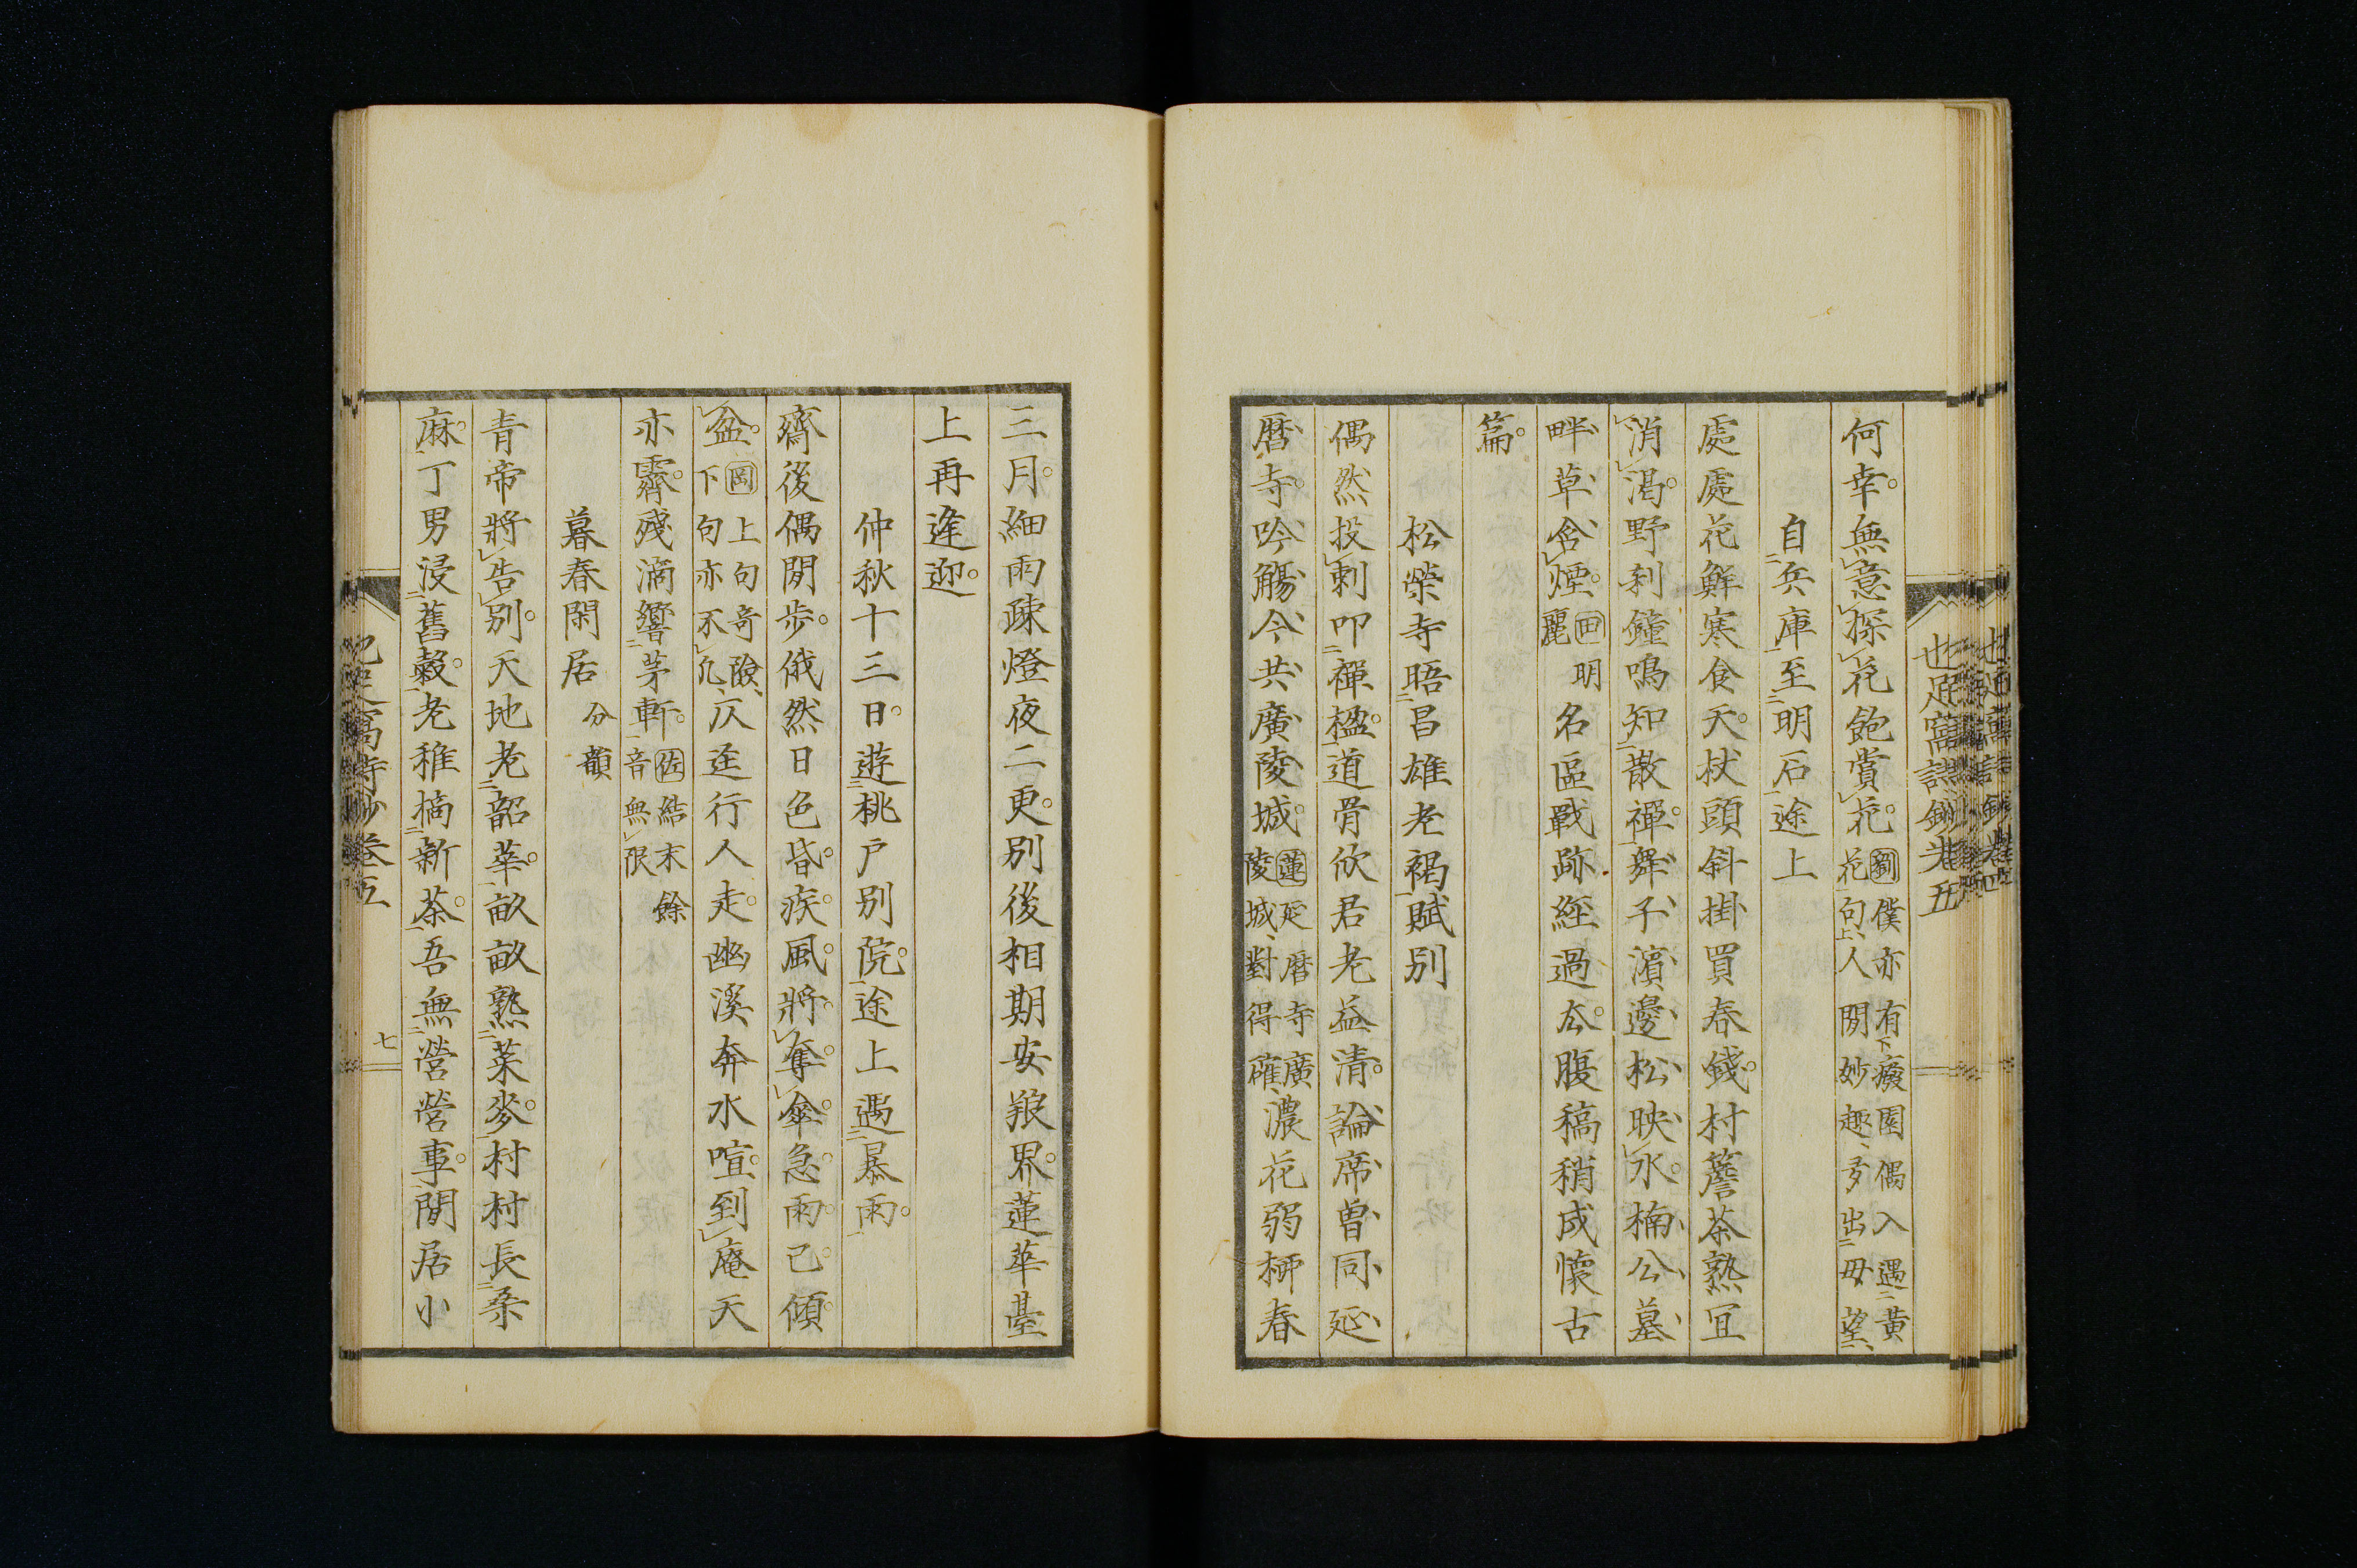 何幸無意探花飽賞花劉僕亦有癡園偶入遇黃花句人間妙趣多出毋望
自兵庫至明石途上
處處花鮮寒食天杖頭斜掛買春錢村簷茶熟宜
消渴野刹鐘鳴知散禪舞子濱邊松映水楠公墓
畔草含煙田明麗名區戰跡經過处腹稿稍成懷古
篇
松榮寺晤昌雄老褐賦別
偶然投刺叩禪楹道骨欣君老益清論席曾同延
曆寺吟觴今共廣陵城蓮延曆寺廣陵城對得確濃花弱柳春
三月細雨疎燈夜二更別後相期安羪界蓮華臺
上再逢迎
仲秋十三日遊桃戶別院途上遇暴雨
齋後偶閒步俄然日色昏疾風將奪傘急雨已傾
盆岡上句奇險下句亦不凡仄逕行人走幽溪奔水喧到庵天
亦霽殘滴響茅軒佐結末餘音無限
暮春閑居 分韻
青帝將告別天地老韶華畝畝熟菜麥村村長桑
麻丁男浸舊穀老稚摘新茶吾無營營事閒居小
也足窩詩鈔卷五
七